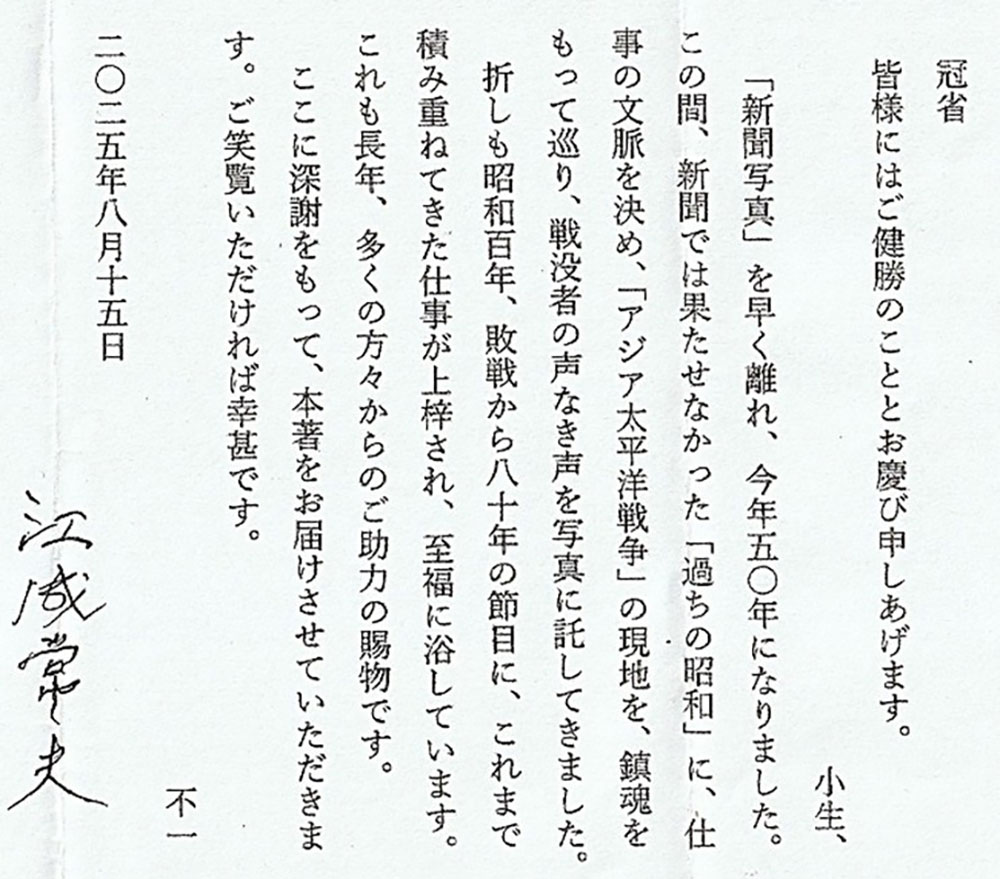 冠省
皆様にはご健勝のこととお慶び申しあげます。
小生、
「新聞写真」を早く離れ、今年五〇年になりました。
この間、新聞では果たせなかった「過ちの昭和」に、仕
事の文脈を決め、「アジア太平洋戦争」の現地を、鎮魂を
もって巡り、戦没者の声なき声を写真に託してきました。
折しも昭和百年、敗戦から八十年の節目に、これまで
積み重ねてきた仕事が上梓され、至福に浴しています。
これも長年、多くの方々からのご助力の賜物です。
ここに深謝をもって、本著をお届けさせていただきま
す。ご笑覧いただければ幸甚です。
不一
二〇二五年八月十五日
江成常夫